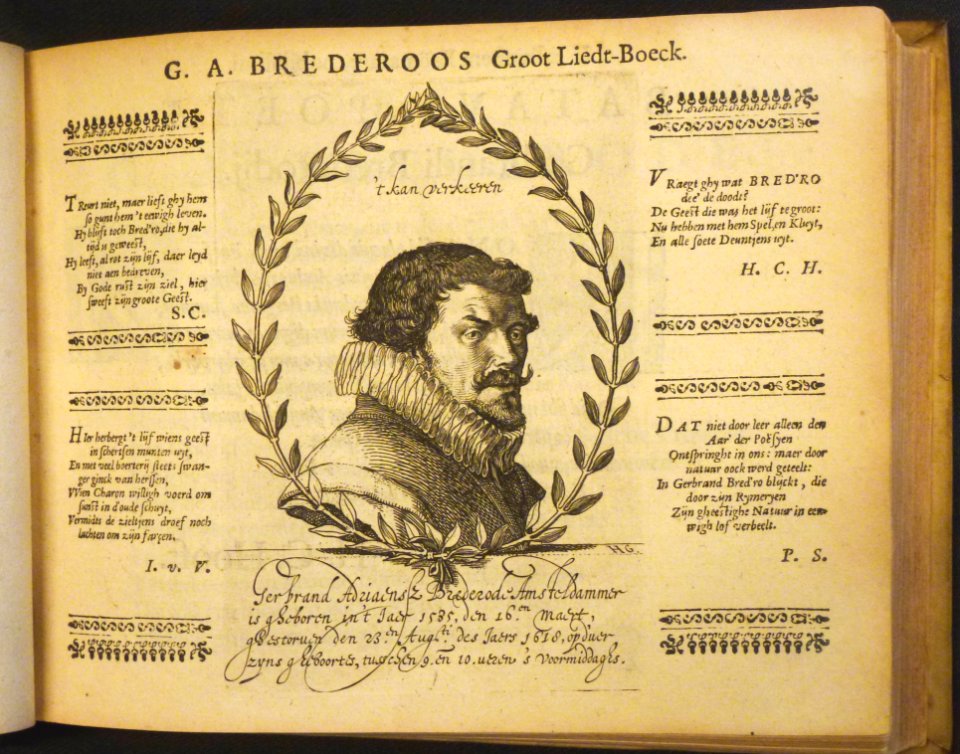 G. A. BREDEROOS Groot Liedt-Boeck.
TReurt niet, maer lieft ghy hem
so gunt hem 't eewigh leven.
Hy blijft toch Bred'ro, die hy al-
tijd is geweest,
Hy leeft, al rot zijn lijf, daer leyd
niet aen bedreven,
By Gode rust zijn ziel, hier
sweeft zijn groote Geest.
S. C.
HIer herbergt 't lijf wiens geest
in schertsen munten uyt,
En met veel boerterij steets swan-
ger ginck van herssen,
Wien Charon willigh voerd om
sunst in d'oude schuyt,
Vermidts de zieltjens droef noch
lachten om zijn farçen.
I. v. V.
't kan verkeeren
HG.
Gerbrand Adriaensz Brederode Amsteldammer
is gheboren in't Jaer 1585, den 16.en Maert,
ghestorven den 23.en Augti. des Jaers 1618, op d'uer
zyns gheboortes, tusschen 9. en 10. ueren 's voormiddaghs.
VRaegt ghy wat BRED'RO
dee' de doodt?
De Geest die was het lijf te groot:
Nu hebben met hem Spel, en Kluyt,
En alle soete Deuntjens uyt.
H. C. H.
DAT niet door leer alleen den
Aar' der Poësyen
Ontspringht in ons: maer door
natuur oock werd geteelt:
In Gerbrand Bred'ro blijckt, die
door zijn Rymeryen
Zijn gheestighe Natuur in eeu-
wigh lof verbeelt.
P. S.